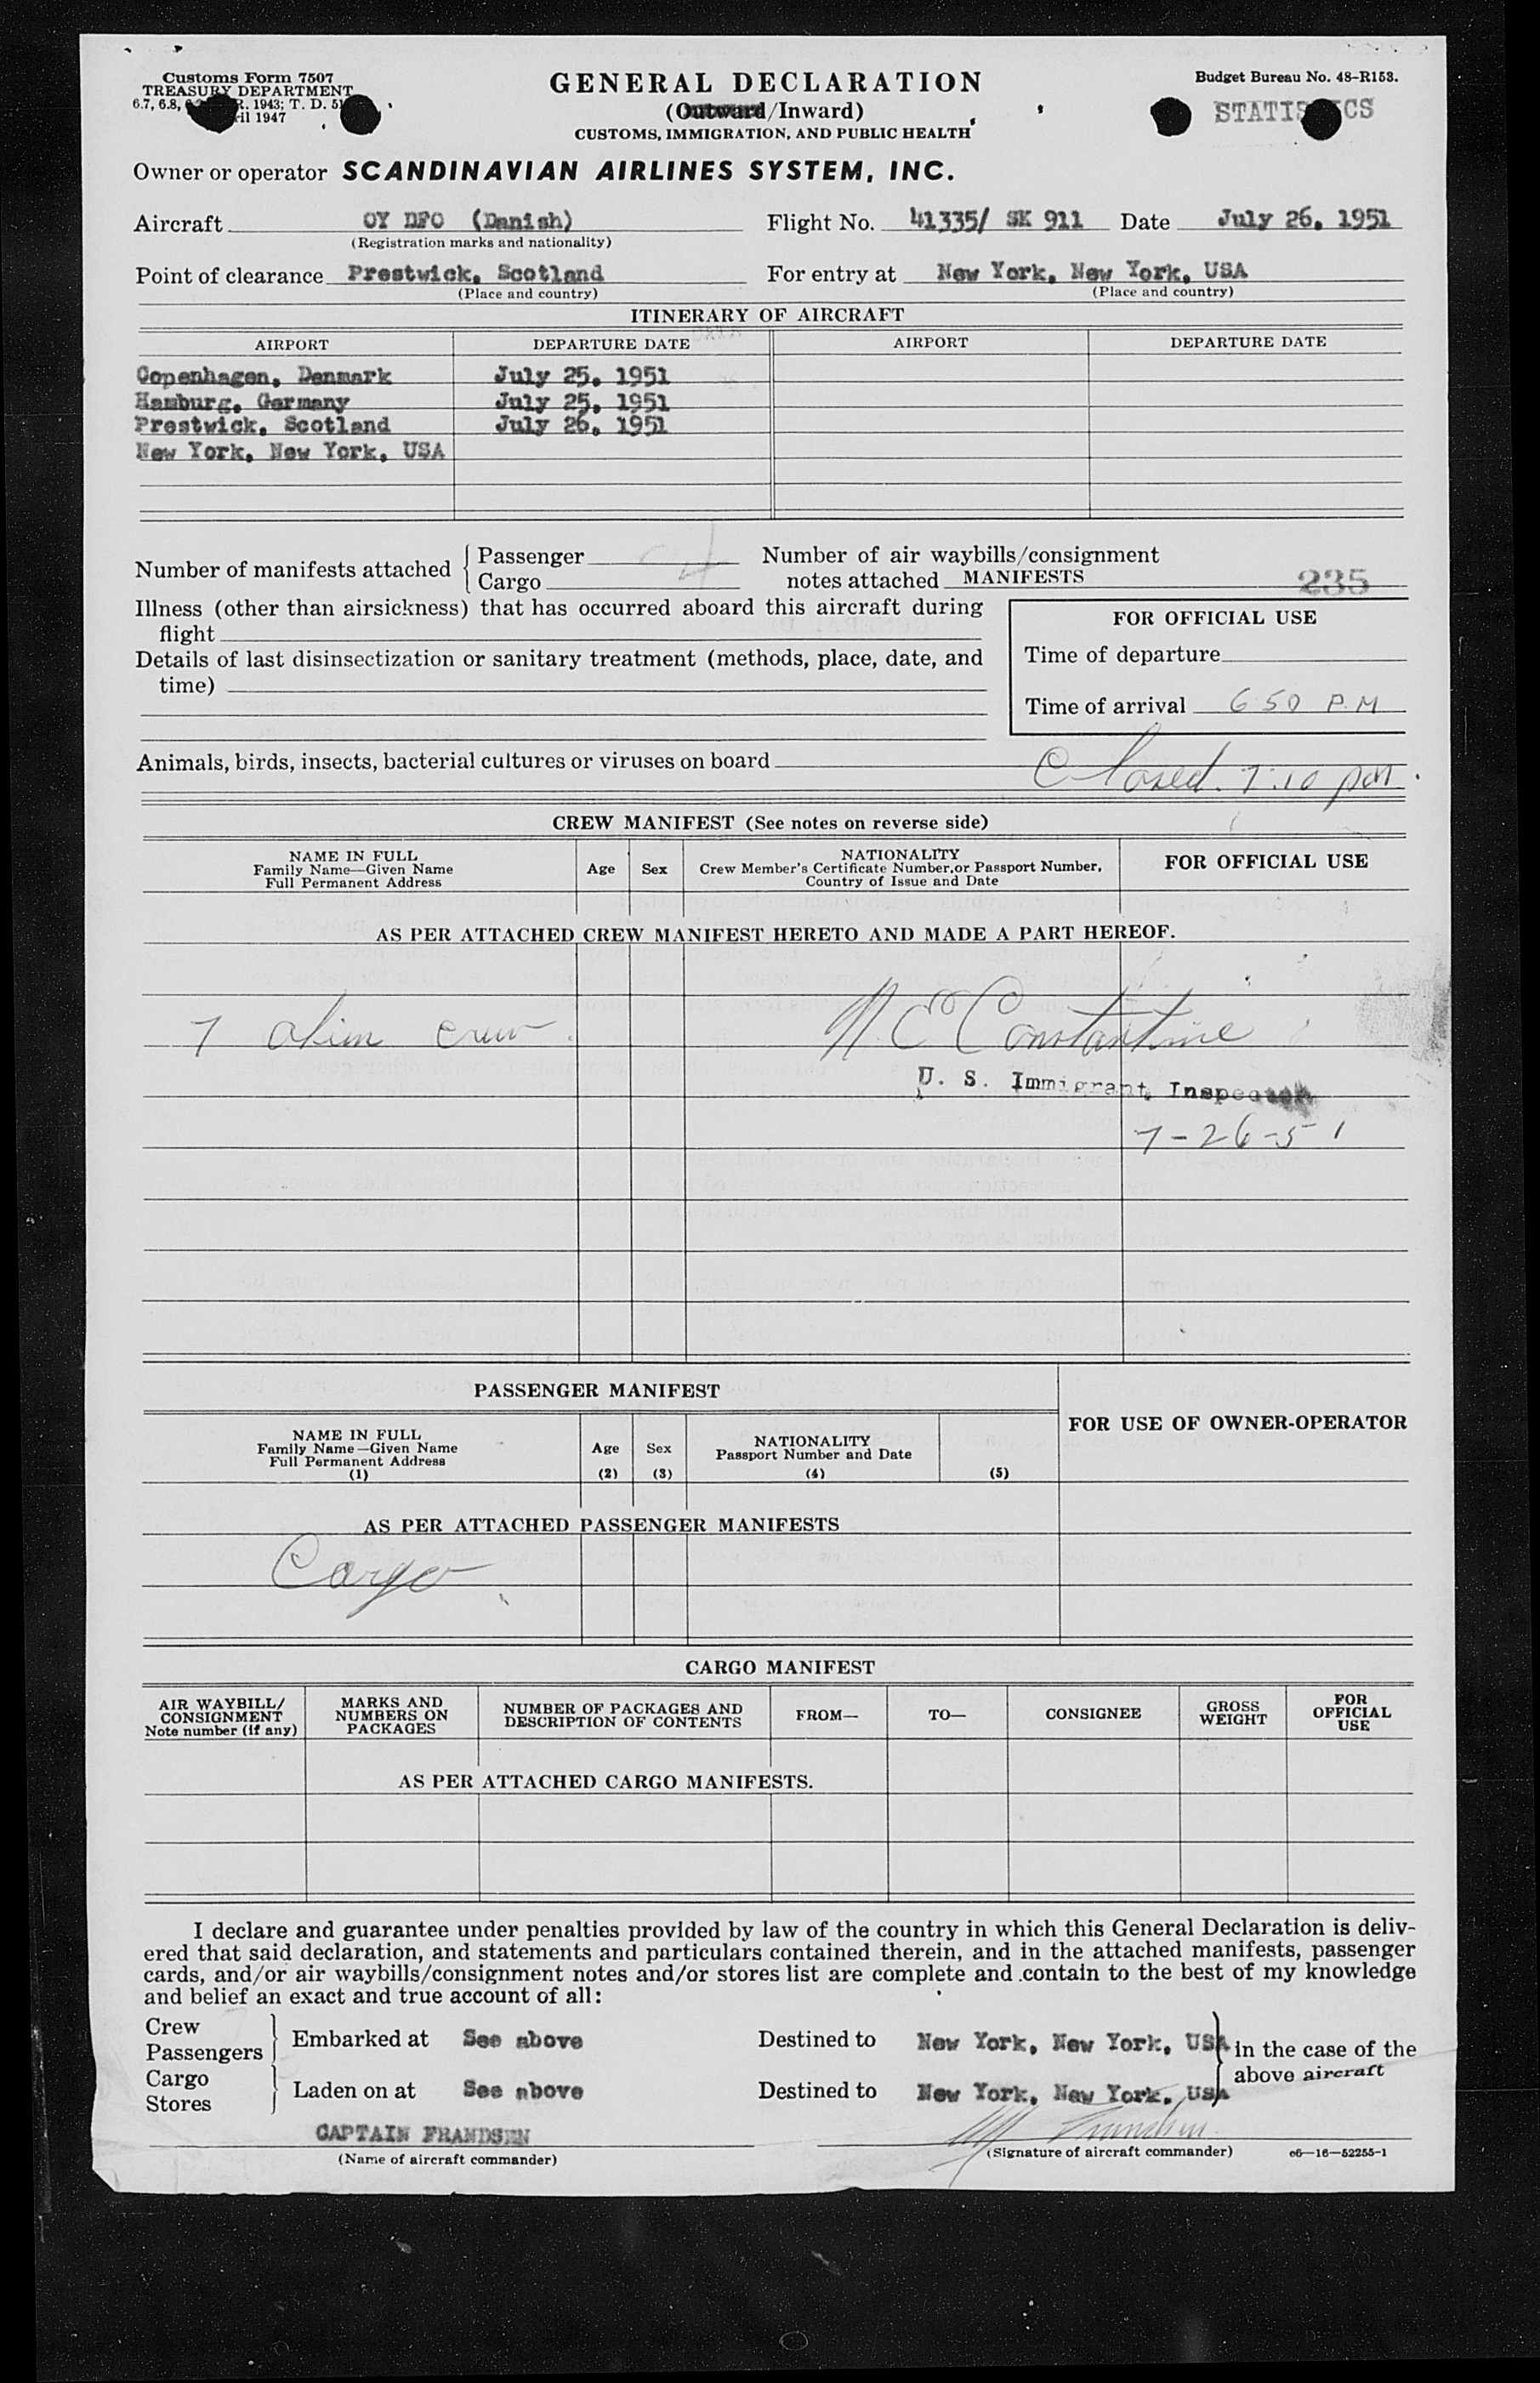 Customs Form 7507
TREASURY DEPARTMENT
6.7, 6.8, R. 1943; T. D.
1947
GENERAL DECLARATION
(Outward/Inward)
CUSTOMS, IMMIGRATION, AND PUBLIC HEALTH
Budget Bureau No. 48-R153.
STATIS CS
Owner or operator SCANDINAVIAN AIRLINES SYSTEM, INC.
Aircraft OY DFO (Danish) Flight No. 41335/ SK 911 Date July 26, 1951
(Registration marks and nationality)
Point of clearance Prestwick, Scotland For entry at New York, New York, USA
(Place and country) (Place and country)
ITINERARY OF AIRCRAFT
AIRPORT DEPARTURE DATE AIRPORT DEPARTURE DATE
Copenhagen, Denmark July 25, 1951
Hamburg, Germany July 25, 1951
Prestwick, Scotland July 26, 1951
New York, New York, USA
Number of manifests attached { Passenger
Cargo
Number of air waybills/consignment
notes attached MANIFESTS 235
Illness (other than airsickness) that has occurred aboard this aircraft during
flight
Details of last disinsectization or sanitary treatment (methods, place, date, and
time)
FOR OFFICIAL USE
Time of departure
Time of arrival 6 50 P.M
Animals, birds, insects, bacterial cultures or viruses on board
Closed. 7:10 pm.
CREW MANIFEST (See notes on reverse side)
NAME IN FULL
Family Name—Given Name
Full Permanent Address
Age
Sex
NATIONALITY
Crew Member's Certificate Number, or Passport Number,
Country of Issue and Date
FOR OFFICIAL USE
AS PER ATTACHED CREW MANIFEST HERETO AND MADE A PART HEREOF.
7 alien crew
N E Constantine
U. S. Immigrant Inspector
7-26-51
PASSENGER MANIFEST
NAME IN FULL
Family Name—Given Name
Full Permanent Address
(1)
Age
(2)
Sex
(3)
NATIONALITY
Passport Number and Date
(4)
(5)
FOR USE OF OWNER-OPERATOR
AS PER ATTACHED PASSENGER MANIFESTS
Cargo
CARGO MANIFEST
AIR WAYBILL/
CONSIGNMENT
Note number (if any)
MARKS AND
NUMBERS ON
PACKAGES
NUMBER OF PACKAGES AND
DESCRIPTION OF CONTENTS
FROM—
TO—
CONSIGNEE
GROSS
WEIGHT
FOR
OFFICIAL
USE
AS PER ATTACHED CARGO MANIFESTS.
I declare and guarantee under penalties provided by law of the country in which this General Declaration is deliv-
ered that said declaration, and statements and particulars contained therein, and in the attached manifests, passenger
cards, and/or air waybills/consignment notes and/or stores list are complete and contain to the best of my knowledge
and belief an exact and true account of all:
Crew
Passengers } Embarked at See above Destined to New York, New York, USA
Cargo
Stores } Laden on at See above Destined to New York, New York, USA
in the case of the
above aircraft
CAPTAIN FRANDSEN
(Name of aircraft commander)
Frandsen
(Signature of aircraft commander) c6—16—52255-1